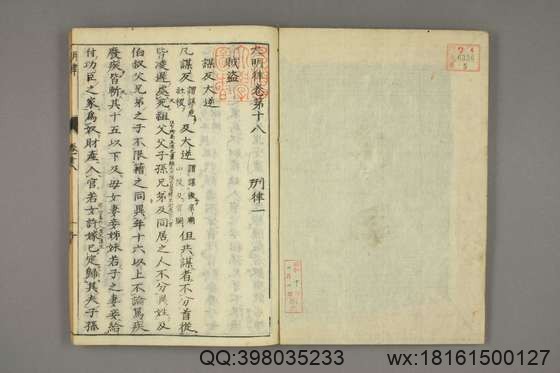 大明律卷第十八
刑律一
賊盜
謀反大逆
凡謀反謂謀危社稷及大逆謂謀毀宗廟山陵及宮闕但共謀者不分首從
皆凌遲處死祖父父子孫兄弟及同居之人不分異姓及
伯叔父兄弟之子不限籍之同異年十六以上不論篤疾
廢疾皆斬其十五以下及母女妻妾姊妹若子之妻妾給
付功臣之家爲奴財產入官若女許嫁已定歸其夫子孫
明律
卷十八
QQ:398035233
wx:18161500127